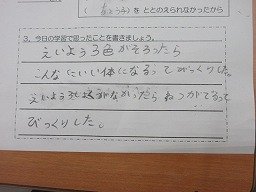 ( ちょうし )を ととのえられなかったから
3. 今日の学習で思ったことを書きましょう。
えいよう3色がそろったら
こんなにいい体になるってびっくりした。
えいよう がなかったら ねつがでるって
びっくりした。